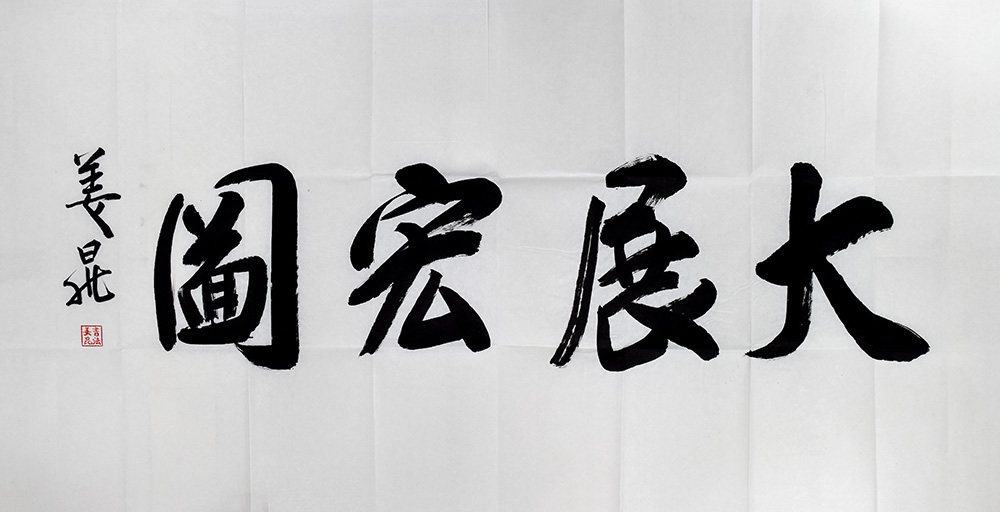 大展宏圖
姜昆